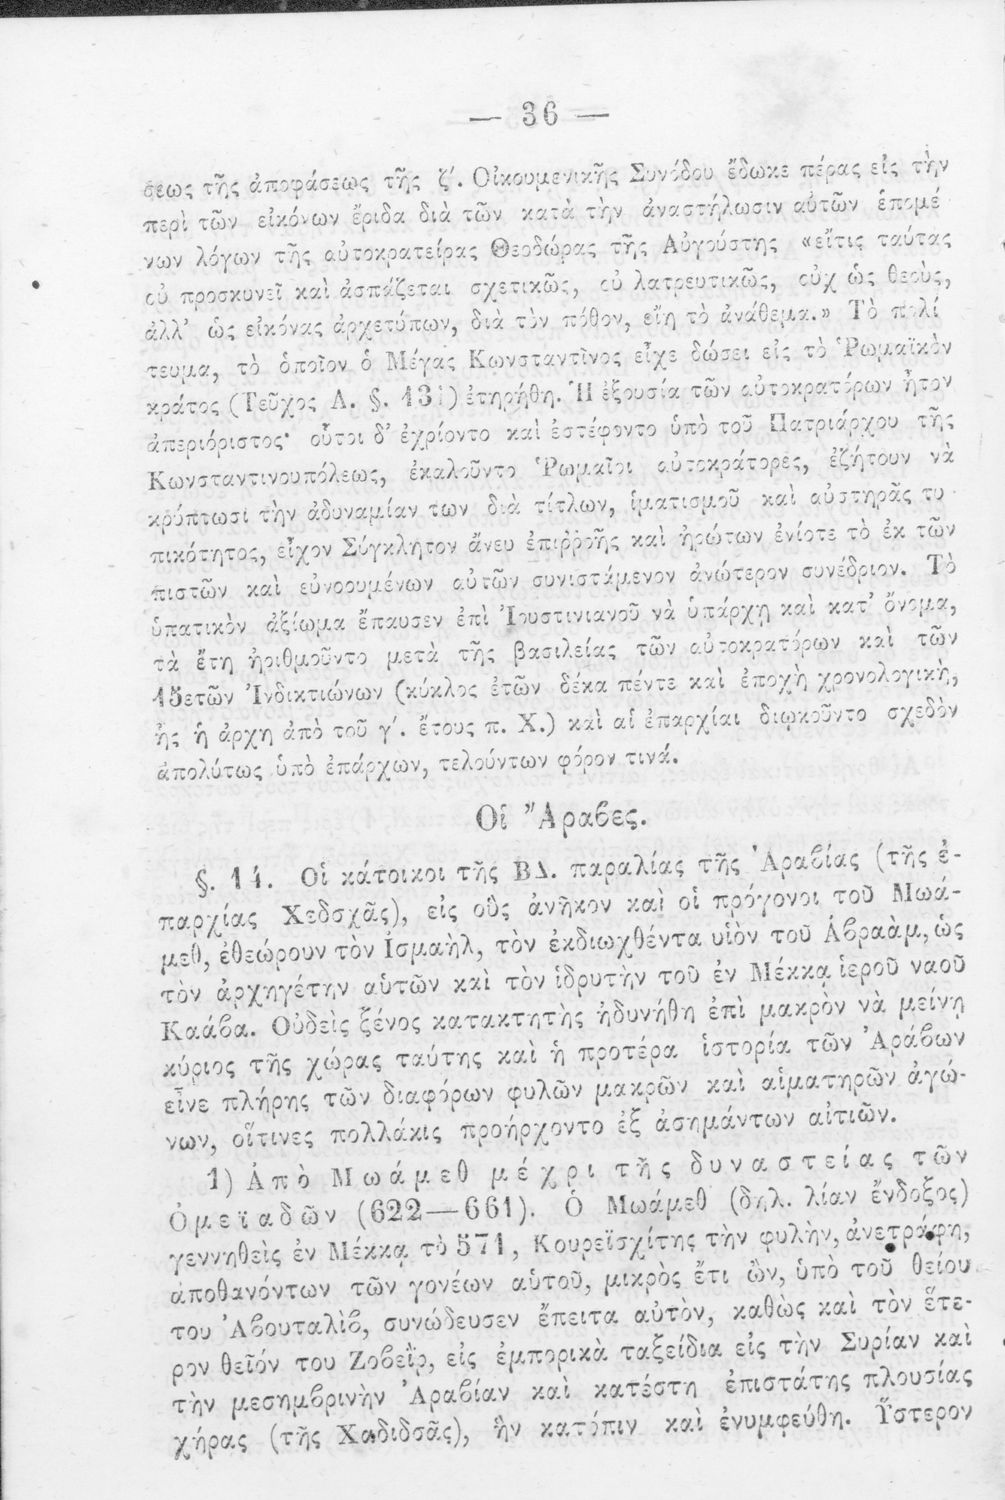 — 36 —
σεως τῆς ἀποφάσεως τῆς ζ΄. Οἰκουμενικῆς Συνόδου ἔδωκε πέρας εἰς τὴν
περὶ τῶν εἰκόνων ἔριδα διὰ τῶν κατὰ τὴν ἀναστήλωσιν αὐτῶν ἑπομέ
νων λόγων τῆς αὐτοκρατείρας Θεοδώρας τῆς Αὐγούστης «εἴτις ταύτας
οὐ προσκυνεῖ καὶ ἀσπάζεται σχετικῶς, οὐ λατρευτικῶς, οὐχ ὡς θεοὺς,
ἀλλ' ὡς εἰκόνας ἀρχετύπων, διὰ τὸν πόθον, εἴη τὸ ἀνάθεμα.» Τὸ πολί
τευμα, τὸ ὁποῖον ὁ Μέγας Κωνσταντῖνος εἶχε δώσει εἰς τὸ Ῥωμαϊκὸν
κράτος (Τεῦχος Α. §. 131) ἐτηρήθη. Ἡ ἐξουσία τῶν αὐτοκρατόρων ἦτον
ἀπεριόριστος· οὗτοι δ' ἐχρίοντο καὶ ἐστέφοντο ὑπὸ τοῦ Πατριάρχου τῆς
Κωνσταντινουπόλεως, ἐκαλοῦντο Ῥωμαῖοι αὐτοκράτορες, ἐζήτουν νὰ
κρύπτωσι τὴν ἀδυναμίαν των διὰ τίτλων, ἱματισμοῦ καὶ αὐστηρᾶς τυ
πικότητος, εἶχον Σύγκλητον ἄνευ ἐπιῤῥοῆς καὶ ἠρώτων ἐνίοτε τὸ ἐκ τῶν
πιστῶν καὶ εὐνοουμένων αὐτῶν συνιστάμενον ἀνώτερον συνέδριον. Τὸ
ὑπατικὸν ἀξίωμα ἔπαυσεν ἐπὶ Ἰουστινιανοῦ νὰ ὑπάρχῃ καὶ κατ' ὄνομα,
τὰ ἔτη ἠριθμοῦντο μετὰ τῆς βασιλείας τῶν αὐτοκρατόρων καὶ τῶν
15ετῶν Ἰνδικτιώνων (κύκλος ἐτῶν δέκα πέντε καὶ ἐποχὴ χρονολογικὴ,
ἧς ἡ ἀρχη ἀπὸ τοῦ γ΄. ἔτους π. Χ.) καὶ αἱ ἐπαρχίαι διῳκοῦντο σχεδὸν
ἀπολύτως ὑπὸ ἐπάρχων, τελούντων φόρον τινά.
Οἱ Ἄραβες.
§. 14. Οἱ κάτοικοι τῆς ΒΔ. παραλίας τῆς Ἀραβίας (τῆς ἐ-
παρχίας Χεδσχᾶς), εἰς οὓς ἀνῆκον καὶ οἱ πρόγονοι τοῦ Μωά-
μεθ, ἐθεώρουν τὸν Ἰσμαὴλ, τὸν ἐκδιωχθέντα υἱὸν τοῦ Ἀβραὰμ, ὡς
τὸν ἀρχηγέτην αὑτῶν καὶ τὸν ἱδρυτὴν τοῦ ἐν Μέκκᾳ ἱεροῦ ναοῦ
Καάβα. Οὐδεὶς ξένος κατακτητὴς ἠδυνήθη ἐπὶ μακρὸν νὰ μείνῃ
κύριος τῆς χώρας ταύτης καὶ ἡ προτέρα ἱστορία τῶν Ἀράβων
εἶνε πλήρης τῶν διαφόρων φυλῶν μακρῶν καὶ αἱματηρῶν ἀγώ-
νων, οἵτινες πολλάκις προήρχοντο ἐξ ἀσημάντων αἰτιῶν.
1) Ἀπὸ Μωάμεθ μέχρι τῆς δυναστείας τῶν
Ὀμεϊαδῶν (622—661). Ὁ Μωάμεθ (δηλ. λίαν ἔνδοξος)
γεννηθεὶς ἐν Μέκκᾳ τὸ 571, Κουρεϊσχίτης τὴν φυλὴν, ἀνετράφη,
ἀποθανόντων τῶν γονέων αὑτοῦ, μικρὸς ἔτι ὢν, ὑπὸ τοῦ θείου
του Ἀβουταλὶβ, συνώδευσεν ἔπειτα αὐτὸν, καθὼς καὶ τὸν ἕτε-
ρον θεῖόν του Ζοβεῒρ, εἰς ἐμπορικὰ ταξείδια εἰς τὴν Συρίαν καὶ
τὴν μεσημβρινὴν Ἀραβίαν καὶ κατέστη ἐπιστάτης πλουσίας
χήρας (τῆς Χαδιδσᾶς), ἣν κατόπιν καὶ ἐνυμφεύθη. Ὕστερον